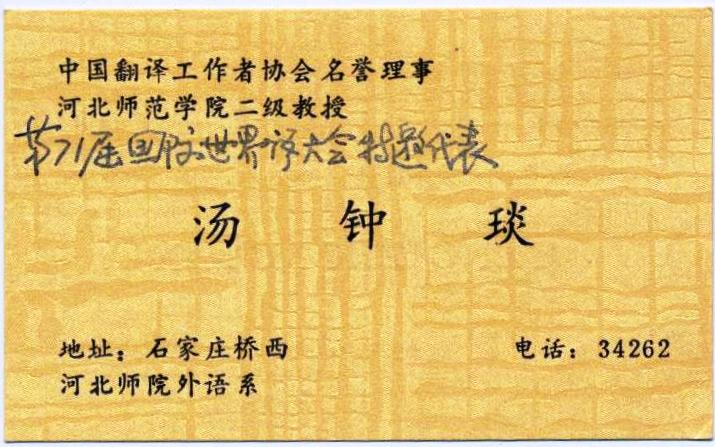 中国翻译工作者协会名誉理事
河北师范学院二级教授
第71届国际世界语大会特邀代表
汤钟琰
地址：石家庄桥西
电话：34262
河北师院外语系